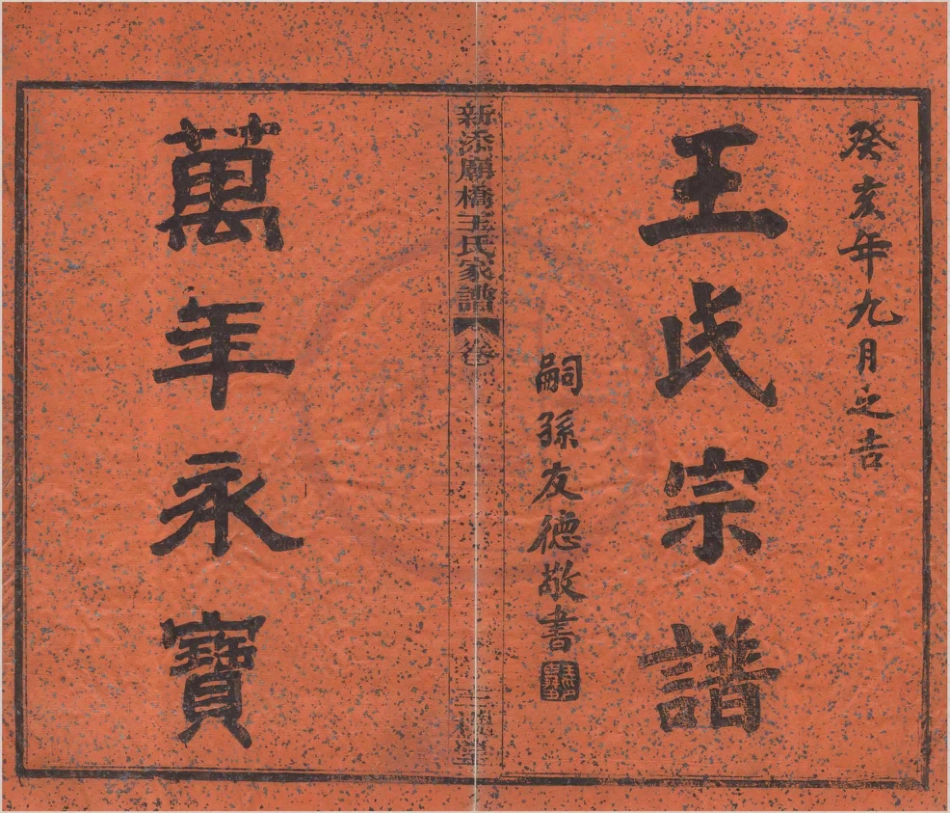 癸亥年九月之吉
王氏宗譜
嗣孫友德敬書
新添廟橋王氏家譜
卷
三槐堂
萬年永寶